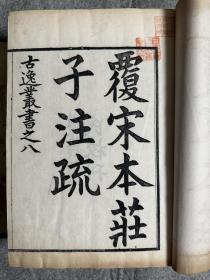 覆宋本莊
子注疏
古逸叢書之八